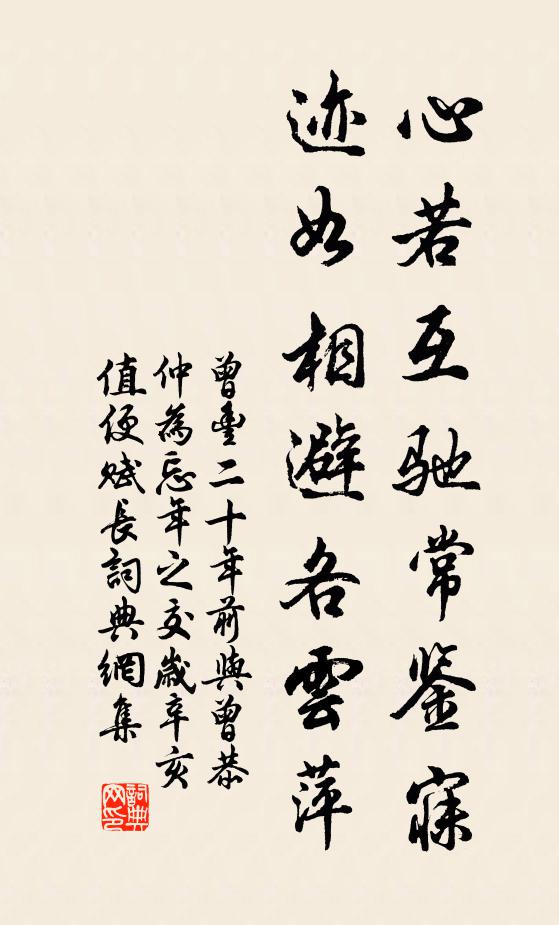 心若互驰常鉴寐
迹如相避各雲萍
曾豐二十年前與曾恭
仲為忘年之交歲辛亥
值便賦長詞典網集
詞典网印